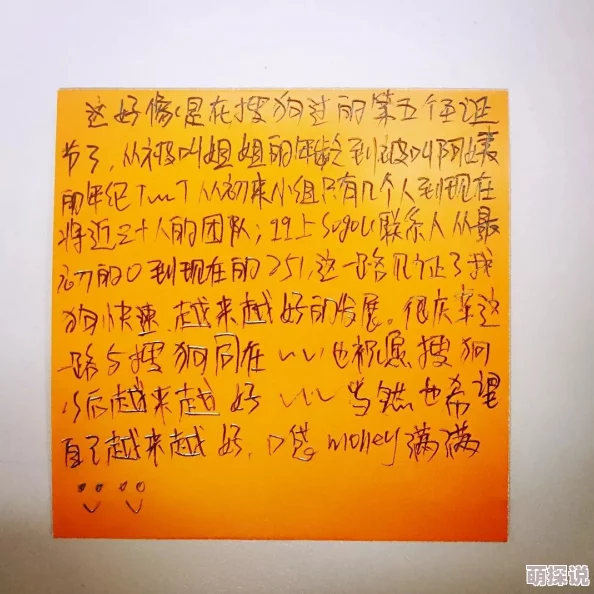 这好像是在搜狗过的第五个圣诞
节了,从被叫姐姐的年龄到被叫阿姨
的年纪T~T从初来小组只有几个人到现在
将近三十人的团队;QQ上Sogou联系人从最
初的0到现在的251,这一路见证了我
狗快速 越来越好的发展。很庆幸这
一路与搜狗同在 也祝愿搜狗
以后越来越好 当然也希望
自己越来越好,口袋money满满
萌探说